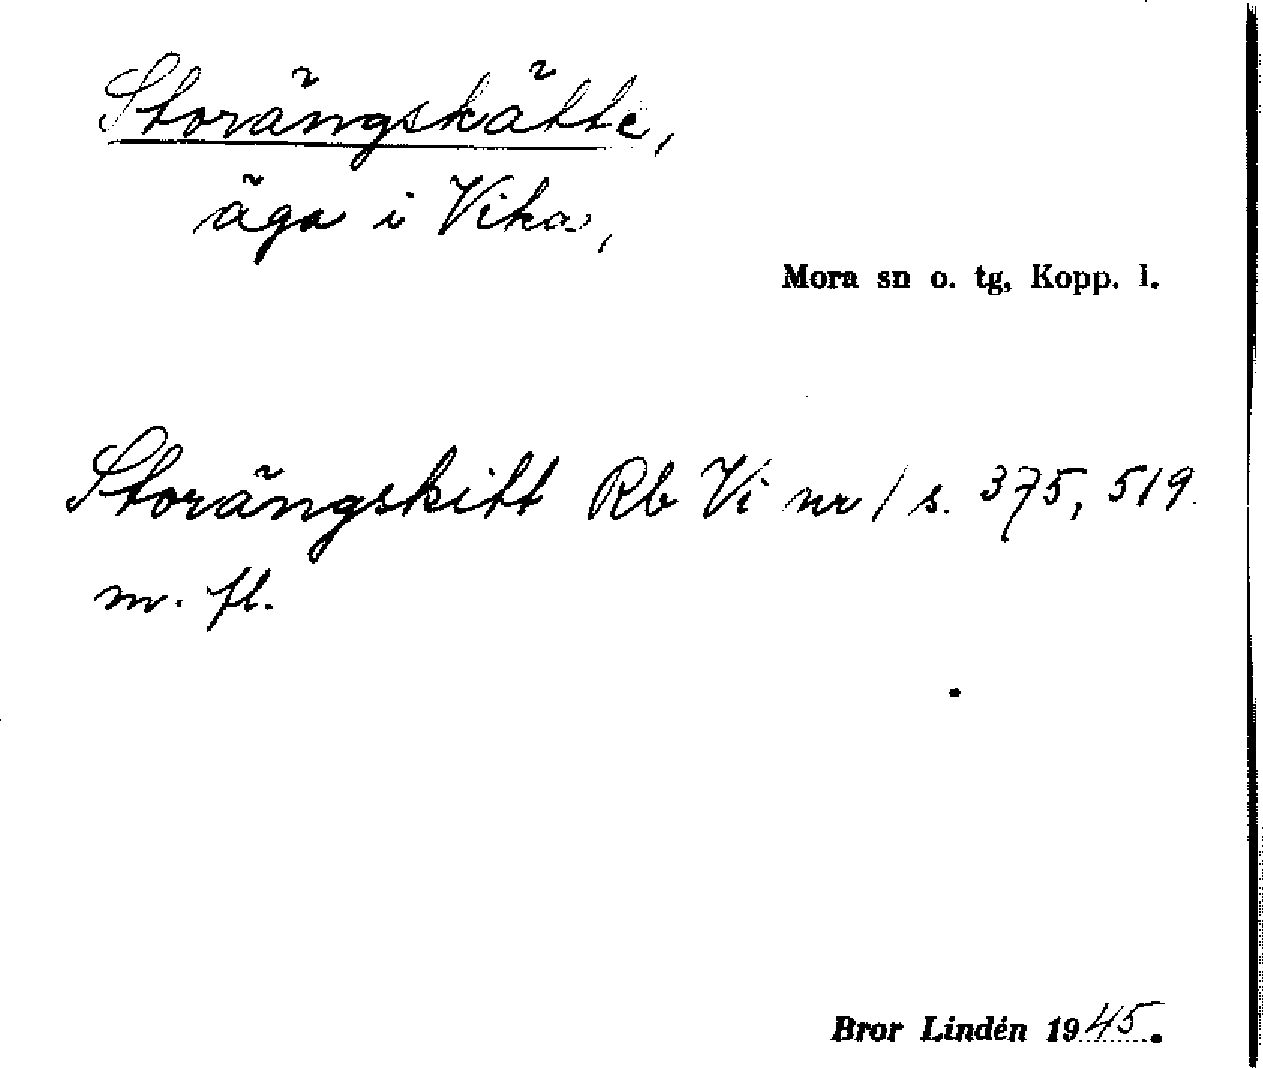 Storängskätte,
äga i Vika,
Mora sn o. tg, Kopp. l.
Storängskitt Rb Vi nr 1 s. 375, 519.
m. fl.
Bror Lindén 1945.